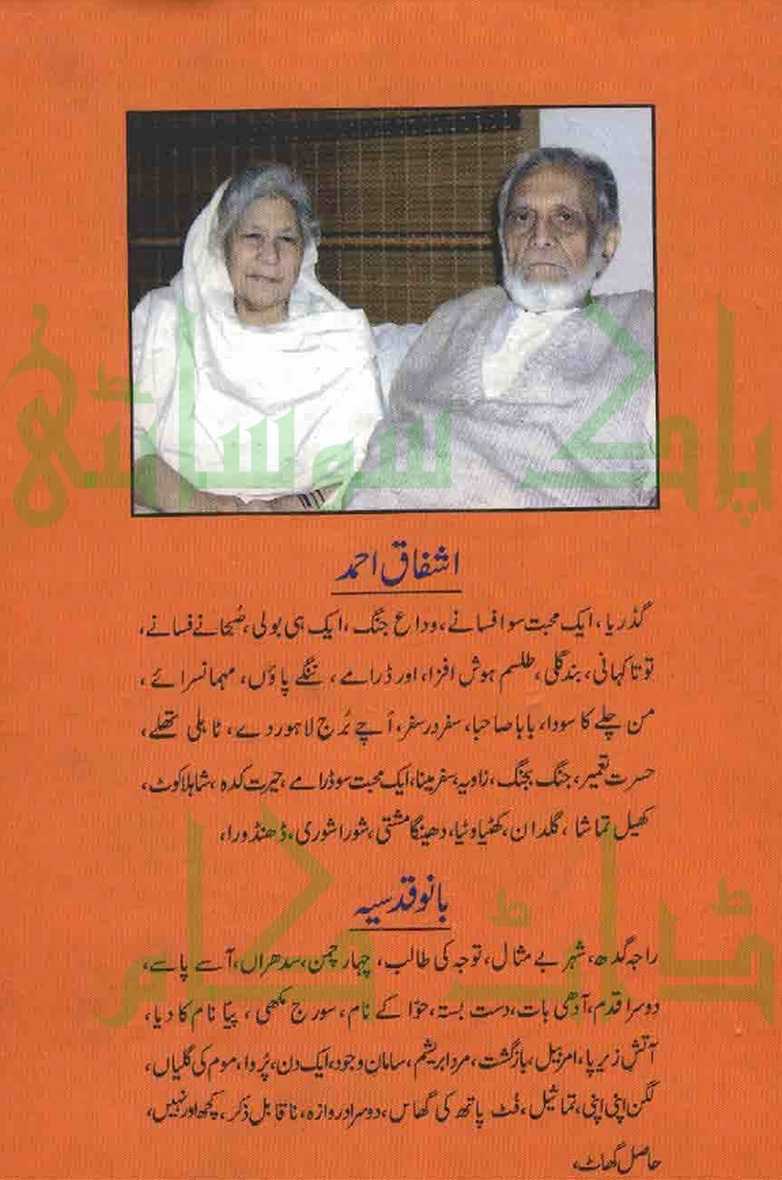 پاک سوسائٹی
اشفاق احمد
گڈریا، ایک محبت سو افسانے، وداع جنگ، ایک ہی بولی، صُبحانے فسانے،
توتا کہانی، بند گلی، طلسم ہوش افزا، اور ڈرامے، ننگے پاؤں، مہمانسرائے،
من چلے کا سودا، بابا صاحبا، سفر در سفر، اُچے بُرج لاہور دے، ٹاہلی تھلے،
حسرت تعمیر، جنگ بجنگ، زاویہ، سفر مینا، ایک محبت سو ڈرامے، حیرت کدہ، شاہلا کوٹ،
کھیل تماشا، گلدان، کھٹیا وٹیا، دھینگا مشتی، شورا شوری، ڈھنڈورا،
ڈاٹ کام
بانو قدسیہ
راجہ گدھ، شہر بے مثال، توجہ کی طالب، چہار چمن، سدھراں، آسے پاسے،
دوسرا قدم، آدھی بات، دست بستہ، حوّا کے نام، سورج مکھی، پیا نام کا دیا،
آتش زیر پا، امر بیل، بازگشت، مرد ابریشم، سامان وجود، ایک دن، پُروا، موم کی گلیاں،
لگن اپنی اپنی، تماثیل، فُٹ پاتھ کی گھاس، دوسرا دروازہ، ناقابل ذکر، کچھ اور نہیں،
حاصل گھاٹ،